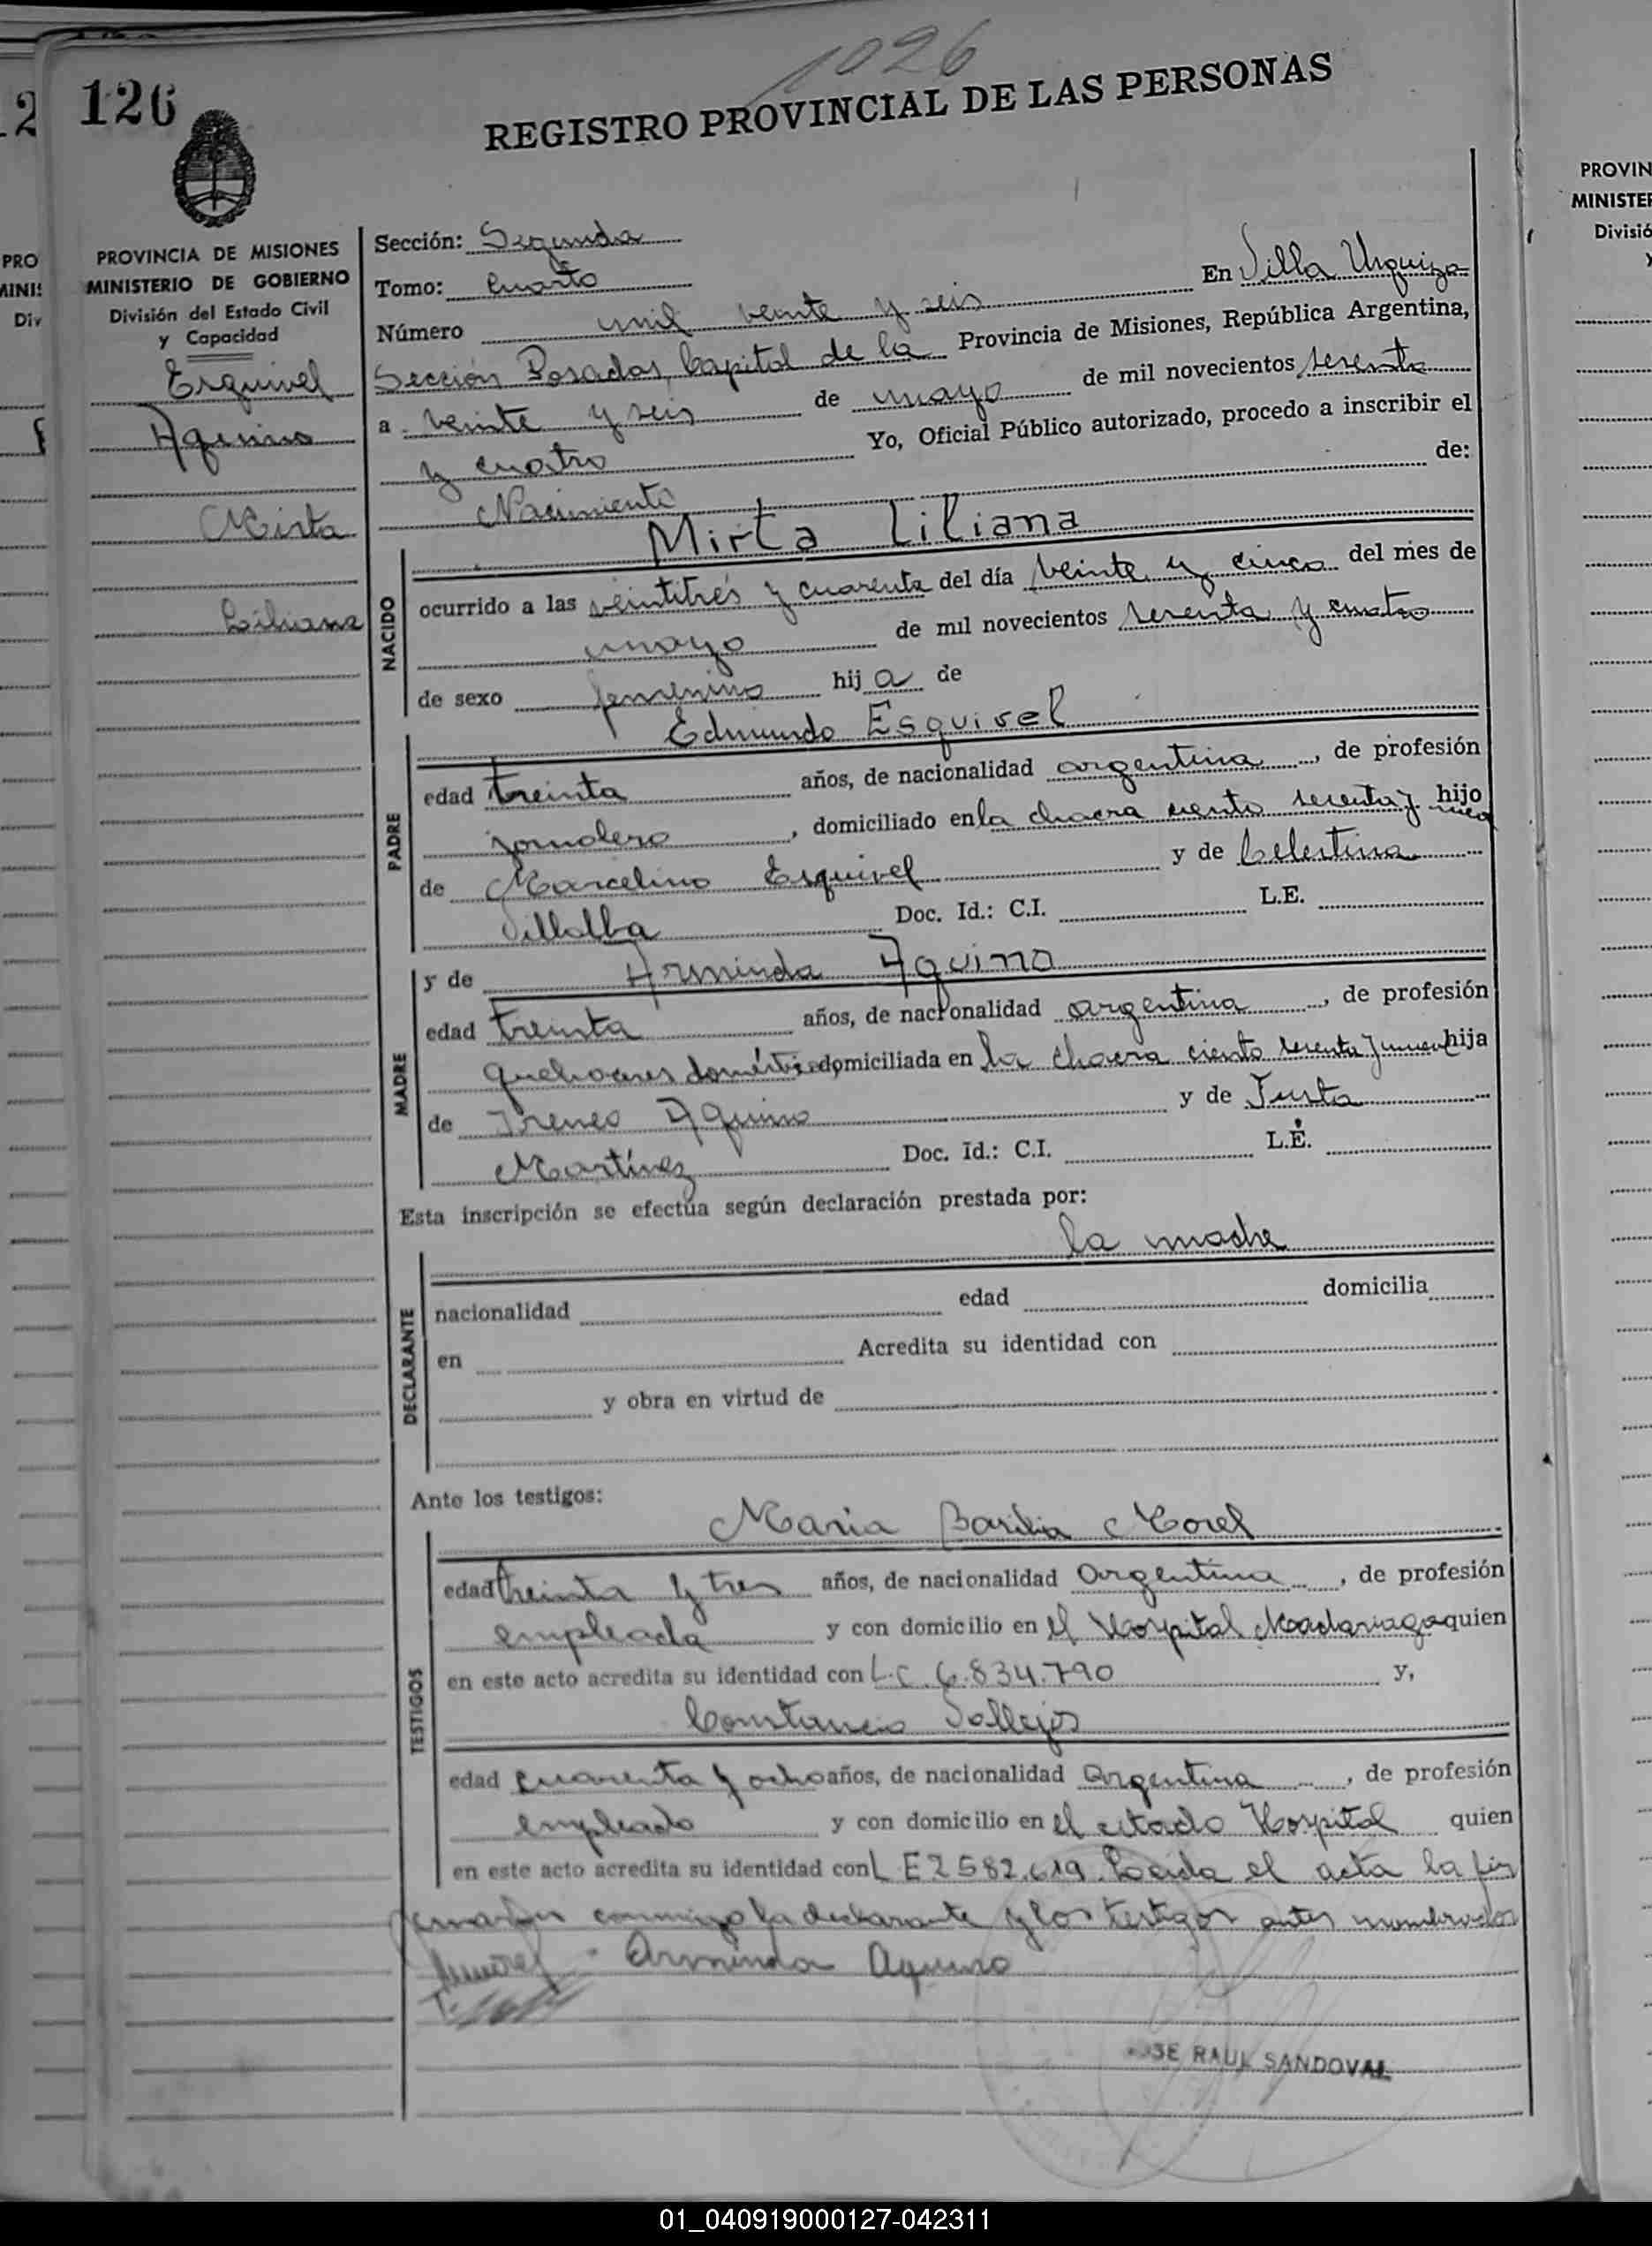 1026
126
REGISTRO PROVINCIAL DE LAS PERSONAS
PROVINCIA DE MISIONES
MINISTERIO DE GOBIERNO
División del Estado Civil
y Capacidad
Esquivel
Aquino
Mirta
Liliana
Sección: Segunda
Tomo: Cuarto
Número mil veinte y seis En Villa Urquiza
Sección Posadas, Capital de la Provincia de Misiones, República Argentina,
a veinte y seis de mayo de mil novecientos sesenta
y cuatro Yo, Oficial Público autorizado, procedo a inscribir el
Nacimiento de:
Mirta Liliana
NACIDO
ocurrido a las veintitrés y cuarenta del día veinte y cinco del mes de
mayo de mil novecientos sesenta y cuatro
de sexo femenino hija de
Edmundo Esquivel
PADRE
edad treinta años, de nacionalidad argentina, de profesión
jornalero, domiciliado en la chacra ciento sesenta y hijo
de Marcelino Esquivel y de Celestina
Villalba Doc. Id.: C.I. L.E.
y de Arminda Aquino
MADRE
edad treinta años, de nacionalidad argentina, de profesión
quehaceres domésticos domiciliada en la chacra ciento sesenta y nueve hija
de Ireneo Aquino y de Justa
Martínez Doc. Id.: C.I. L.E.
Esta inscripción se efectúa según declaración prestada por:
la madre
DECLARANTE
nacionalidad edad domicilia
en Acredita su identidad con
y obra en virtud de
Ante los testigos:
Maria Basilia Morel
TESTIGOS
edad treinta y tres años, de nacionalidad Argentina, de profesión
empleada y con domicilio en el Hospital Madariaga quien
en este acto acredita su identidad con L.C. 6.834.790 y,
Constancio Vallejos
edad cuarenta y ocho años, de nacionalidad Argentina, de profesión
empleado y con domicilio en el citado Hospital quien
en este acto acredita su identidad con L E 2582.619. Leida el acta la fir
conmigo la declarante y los testigos antes nombrados
Arminda Aquino
JOSE RAUL SANDOVAL
PROVIN
MINISTER
Divisió
01_040919000127-042311